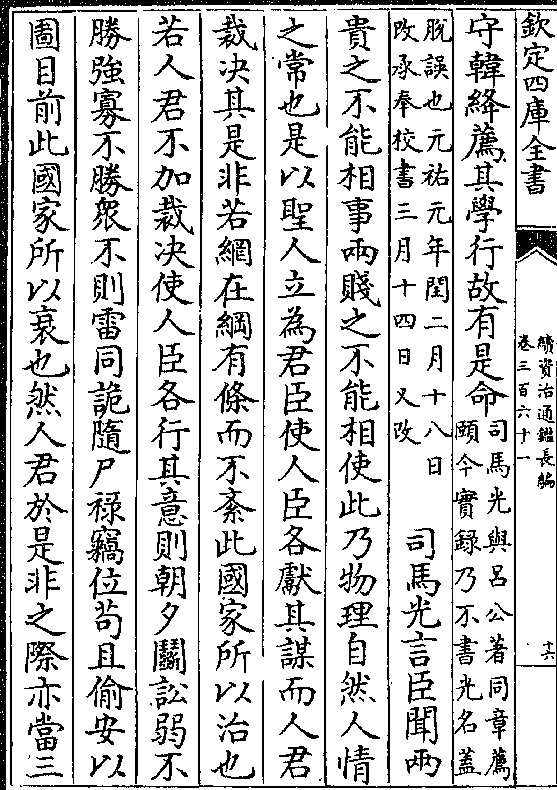 欽定四庫全書
續資治通鑑長編
卷三百六十一
六
守韓絳薦其學行故有是命司馬光與呂公著同章薦
頤今實錄乃不書光名蓋
脫誤也元祐元年閏二月十八日
改承奉校書三月十四日又改
司馬光言臣聞兩
貴之不能相事兩賤之不能相使此乃物理自然人情
之常也是以聖人立為君臣使人臣各獻其謀而人君
裁决其是非若網在綱有條而不紊此國家所以治也
若人君不加裁决使人臣各行其意則朝夕鬭訟弱不
勝強寡不勝衆不則雷同詭隨尸禄竊位苟且偷安以
圖目前此國家所以衰也然人君於是非之際亦當三